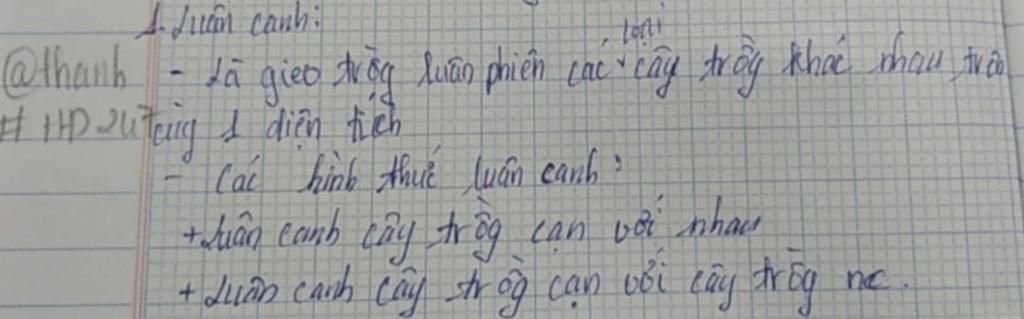 1. Luân canh:
- Là gieo trồg luân phiên các loại cây trồg khác nhau trên
cùg 1 diện tích
- Các hình thức luân canh:
+ Luân canh cây trồg cạn với nhau
+ Luân canh cây trồg cạn với cây trồg nc.
@thanh
# HD247